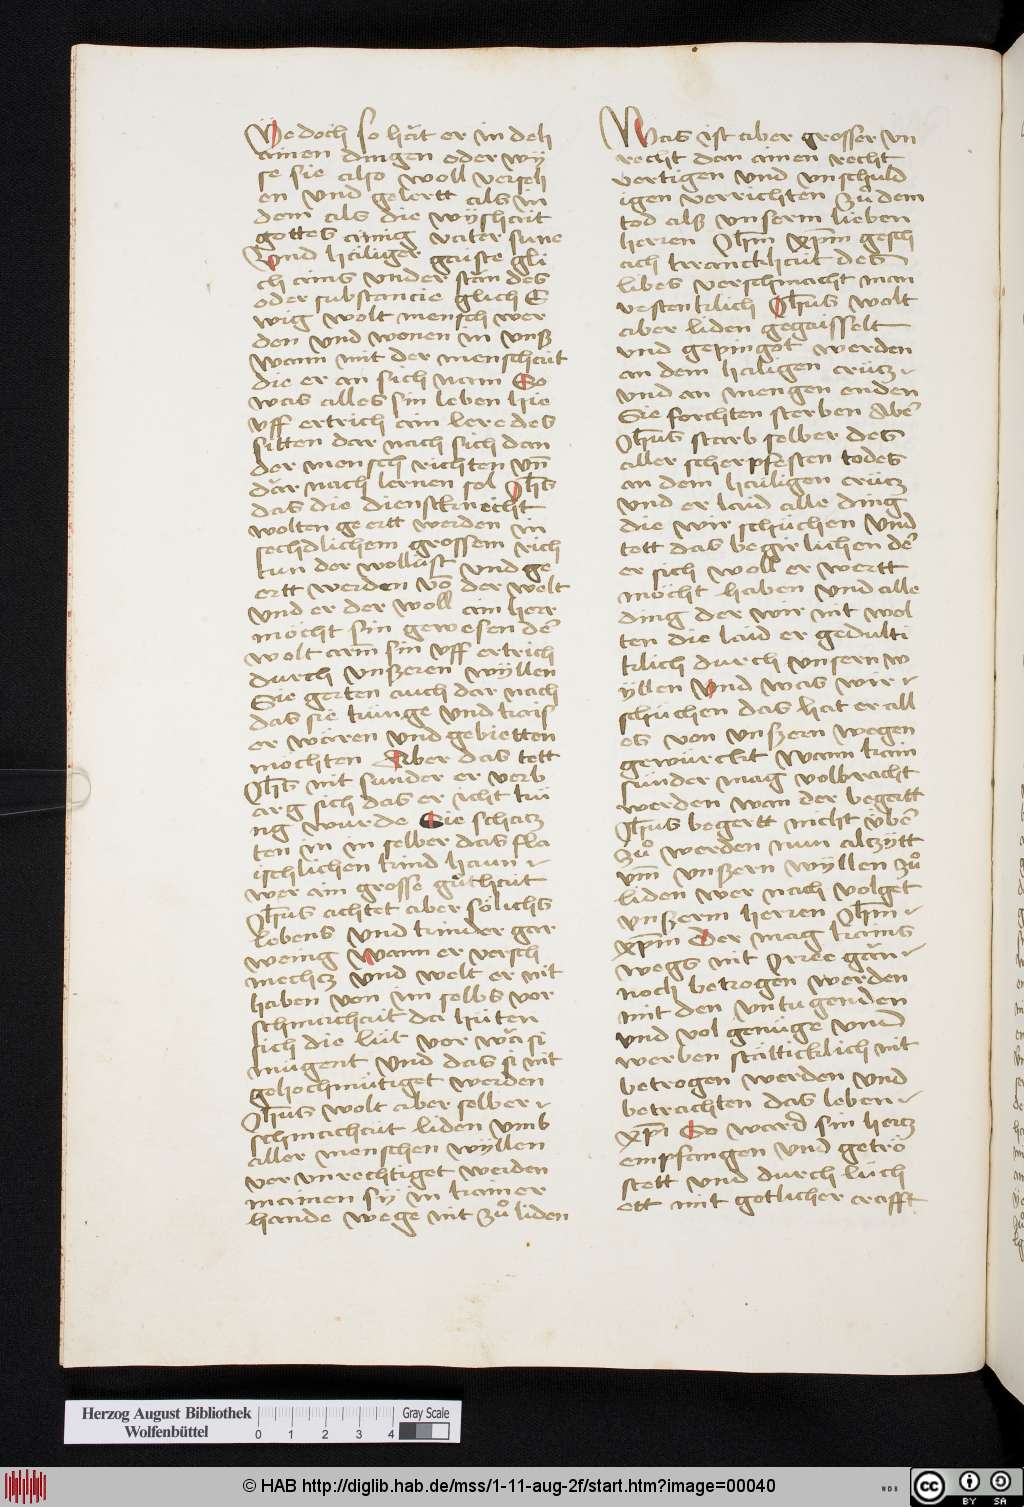 Ye doch so hăt er in deli
ainen dingen oder wÿ
se sie also woll verseh
en vnd gelertt als in
dem als die wÿshait
gottes ainig vater sune
Vnd hăliger gaiste gli
ch ains vnder stăn des
oder substancie glich E
wig wolt mensch wer
den vnd wonen in vnß
wann mit der menschait
die er an sich nam So
was alles sin leben hie
vff ertrich ain lere des
sitten dar nach sich dan
der mensch richten vn̄
dăr nach lernen sol Jh̄s
das die dienstknecht
wolten geertt werden in
sechdlichem grossem rich
tun der wollüst vnd ge
ertt werden vō der wolt
vnd er der woll ain herr
möcht sin gewesen der̄
wolt arm sin vff ertrich
durch vnßeren wÿllen
Sie gerten auch dar nach
das sie künge vnd kais
er wären vnd gebietten
mochten Aber das tett
Jh̄s nit sunder er verb
arg sich das er icht kü
ng wurde Sie schatz
ten in in selber das fla
ischlichen kind haun
wer ain grosse gůthait
Jh̄us achtet aber sölichs
lebens vnd kinder gar
wenig Wann er versch
mechz vnd wolt er nit
haben von im selbs vor
schmachait da hüten
sich die lüt vor wă si
mugent vnd das si nit
gehochmütiget werden
Jh̄us wolt aber selber
schmachait liden vmb
aller menschen wÿllen
ver vnrechtiget werden
mainen sÿ in kainer
hande wege nit zů liden
Was ist aber grosser vn
recht dan ainen recht
vertigen vnd vnschuld
igen verrichten zů dem
tod alß vnserm lieben
herren Jh̄m xp̄m gesch
ach kranckhait des
libes verschmacht man
vestenklich Jh̄us wolt
aber liden gegaisselt
vnd gepingot werden
an dem hailigen crütz
vnd an mengen enden
Sie forchten sterben Aber̄
Jh̄us starb selber des
aller scherpfesten todes
an dem hailigen crütz
vnd er laid alle ding
die wir schüchen vnd
tett das begirlichen der̄
er sich woll er wertt
möcht haben vnd alle
ding der wir nit wol
ten die laid er gedulti
klich durch vnsern w
ÿllen Vnd was wir
schüchen das hat er all
es von vnßern wegen
gewürckt Wann kain
sünder mag volbracht
werden wan der begertt
Jh̄us begertt nicht vber̄
zů werden nun alczÿtt
vm̄ vnßern wÿllen zů
liden wer nach volget
vnßerm herren Jh̄m
xp̄m Der mag kains
wegs nit Jrree găn
noch betrogen werden
mit den vntugenden
vnd vol genüge vnd
werben stältiklich nit
betrogen werden vnd
betrachten das leben
xp̄i So ward sin hertz
empfangen vnd getrö
stett vnd durch lüch
ett mit gotlicher crafft
Herzog August Bibliothek
Wolfenbüttel
0 1 2 3 4
Gray Scale
© HAB http://diglib.hab.de/mss/1-11-aug-2f/start.htm?image=00040
WDB
cc BY SA